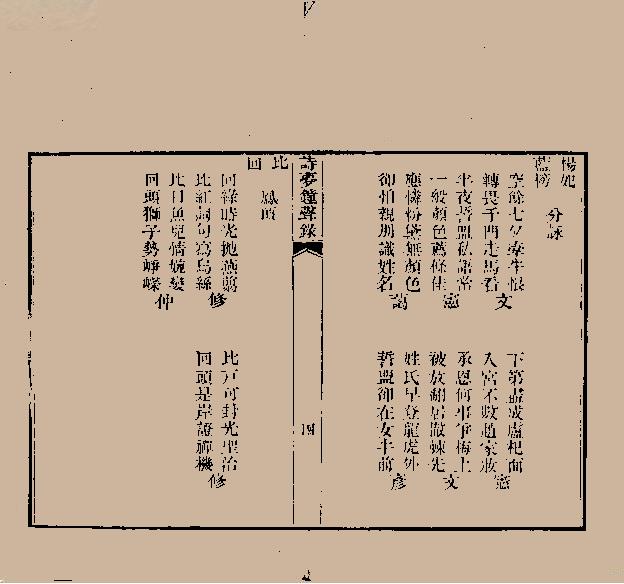 楊妃
藍榜 分詠
空餘七夕牽牛恨
轉畏千門走馬看 文
半夜誓盟私語當
一般顏色舊條佳 憲
應憐粉黛無顏色
卻怕親朋識姓名
下第盡成盧杞面
入宮不數趙家妝 憲
承恩何事爭梅上
被放翻居棘先 文
姓氏早登龍虎外
誓盟卻在女牛前 彥
詩夢鐘聲錄
四
比
回 鳳頂
回綠時光拋燕剪
比紅詞句寫烏絲 修
比目魚兒情婉孌
回頭獅子勢崢嶸 仲
比戶可封光聖治
回頭是岸證禪機 修